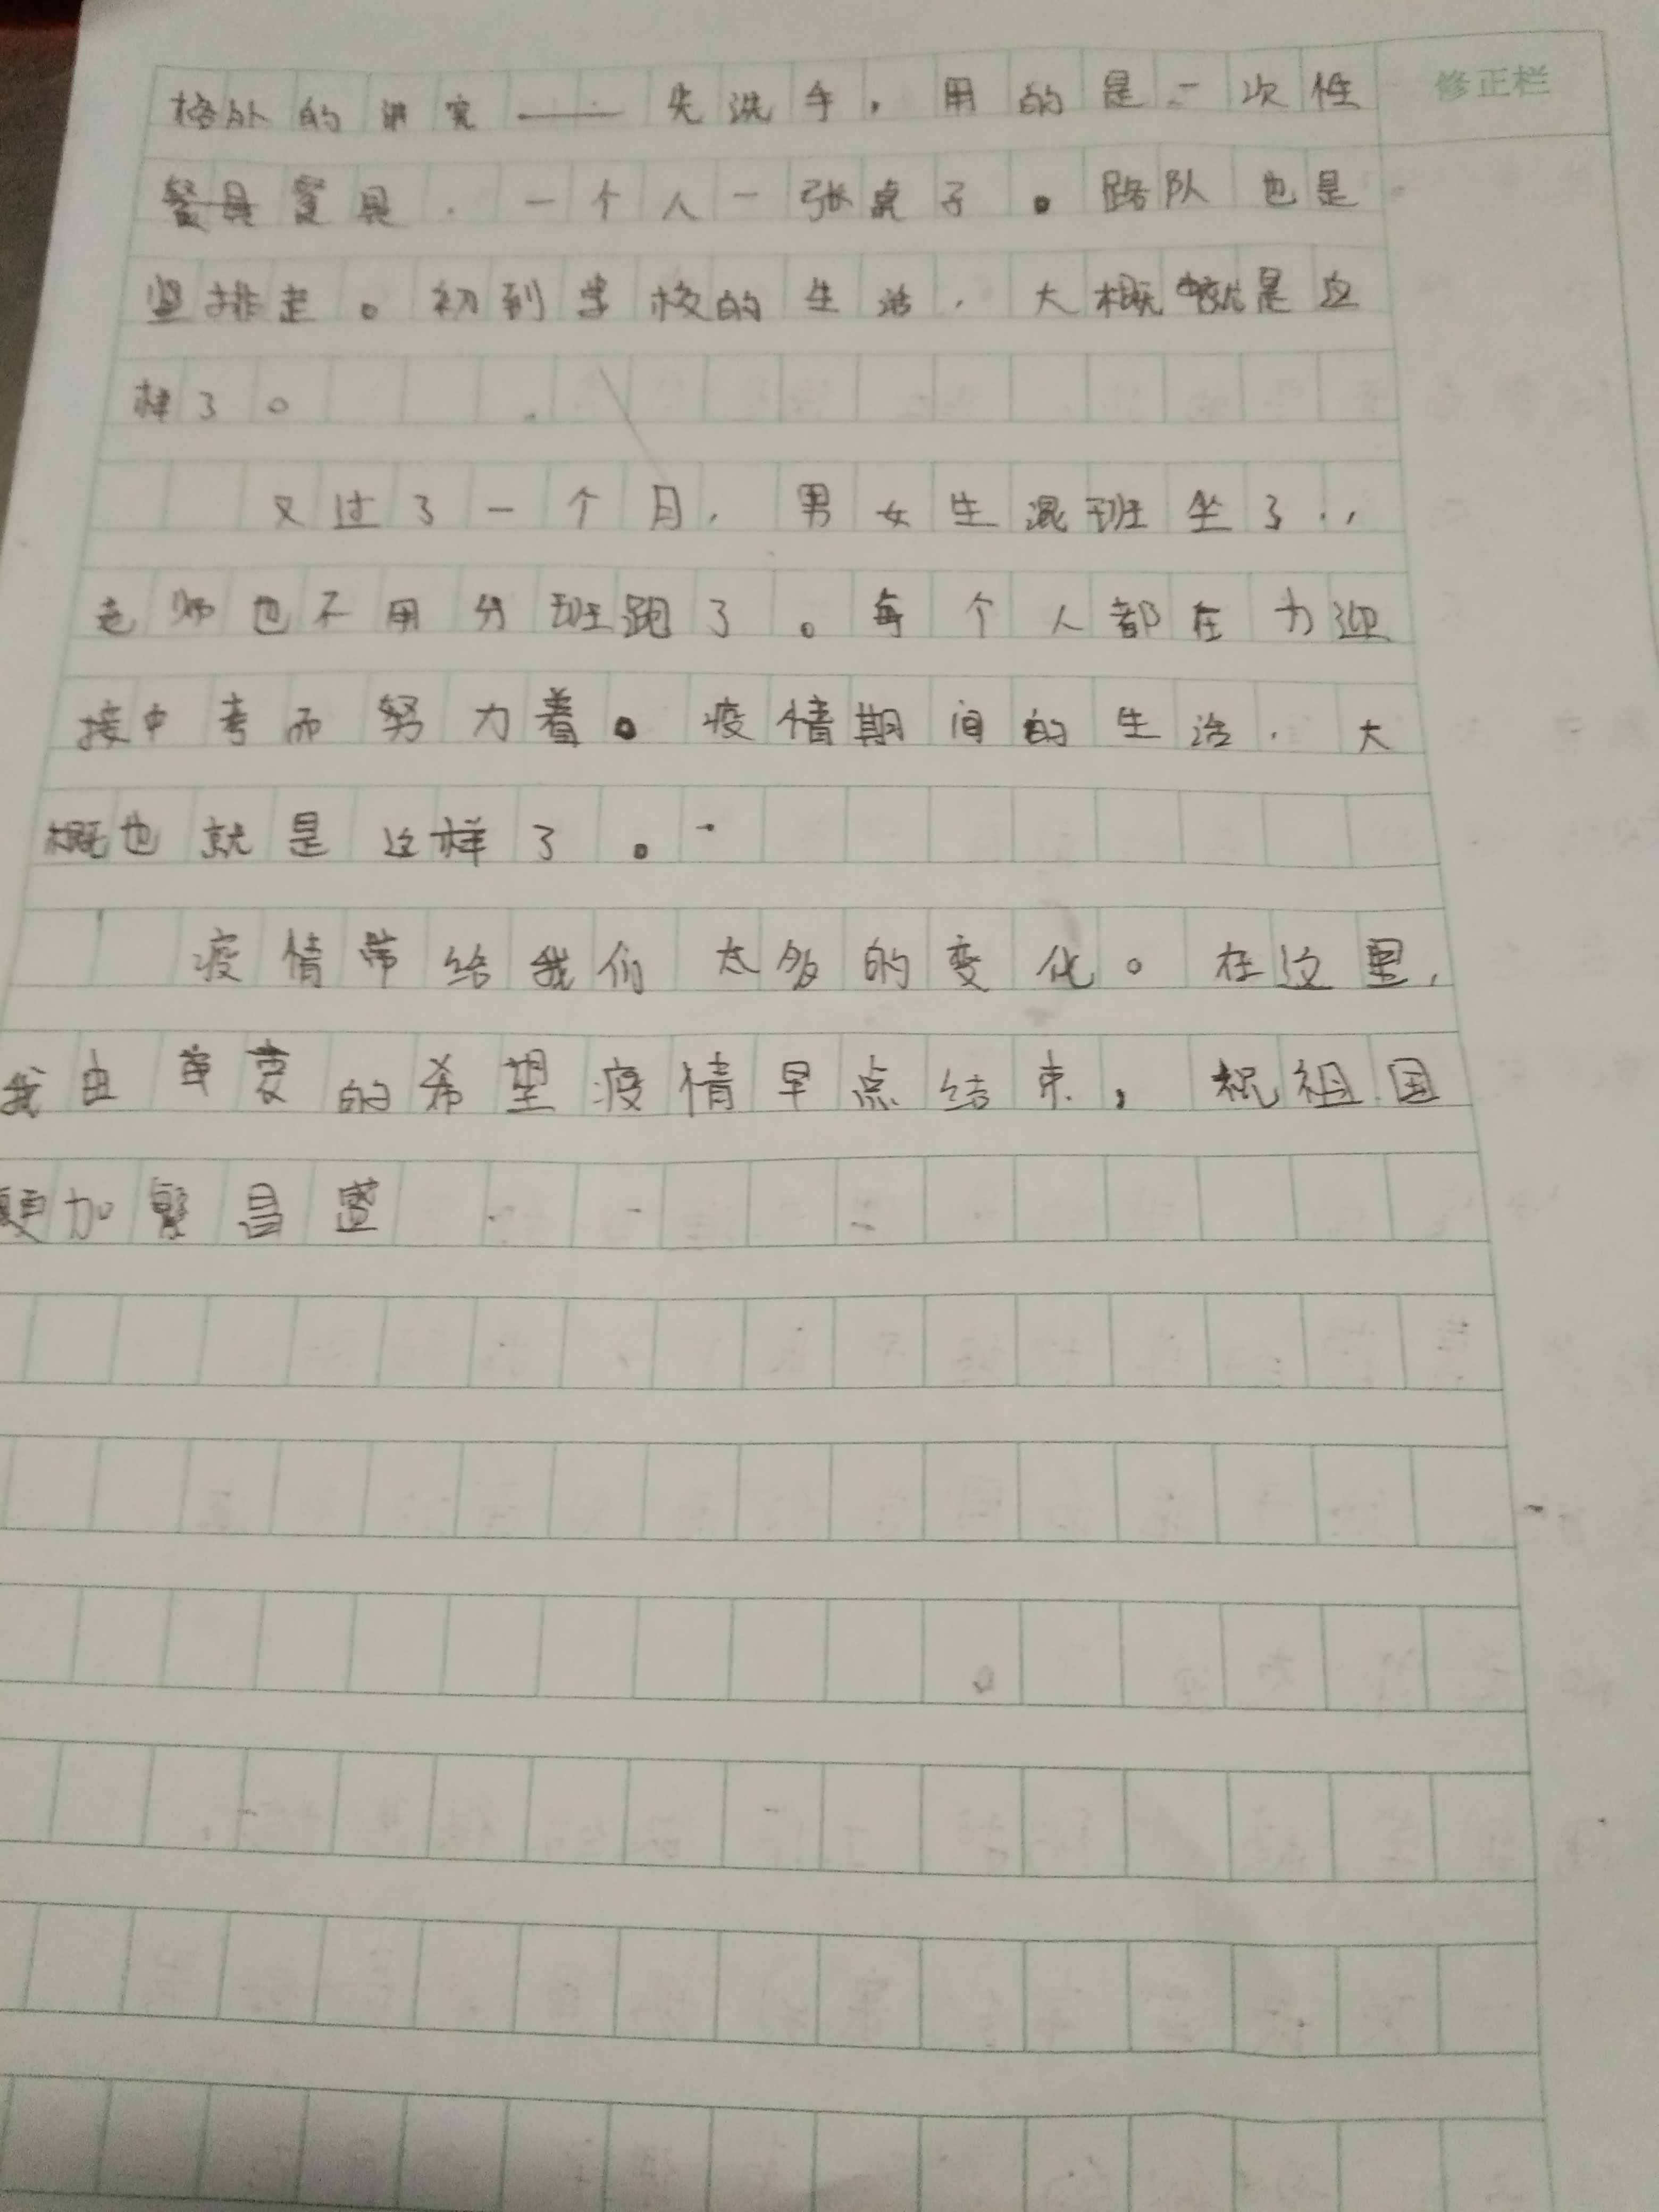 格外的讲究——先洗手，用的是一次性
修正栏
餐具，一个人一张桌子。路队也是
竖排走。初到学校的生活，大概就是这
样了。
又过了一个月，男女生混班坐了，
老师也不用分班跑了。每个人都在力迎
接中考而努力着。疫情期间的生活，大
概也就是这样了。
疫情带给我们太多的变化。在这里，
我由衷的希望疫情早点结束，祝祖国
更加繁昌盛